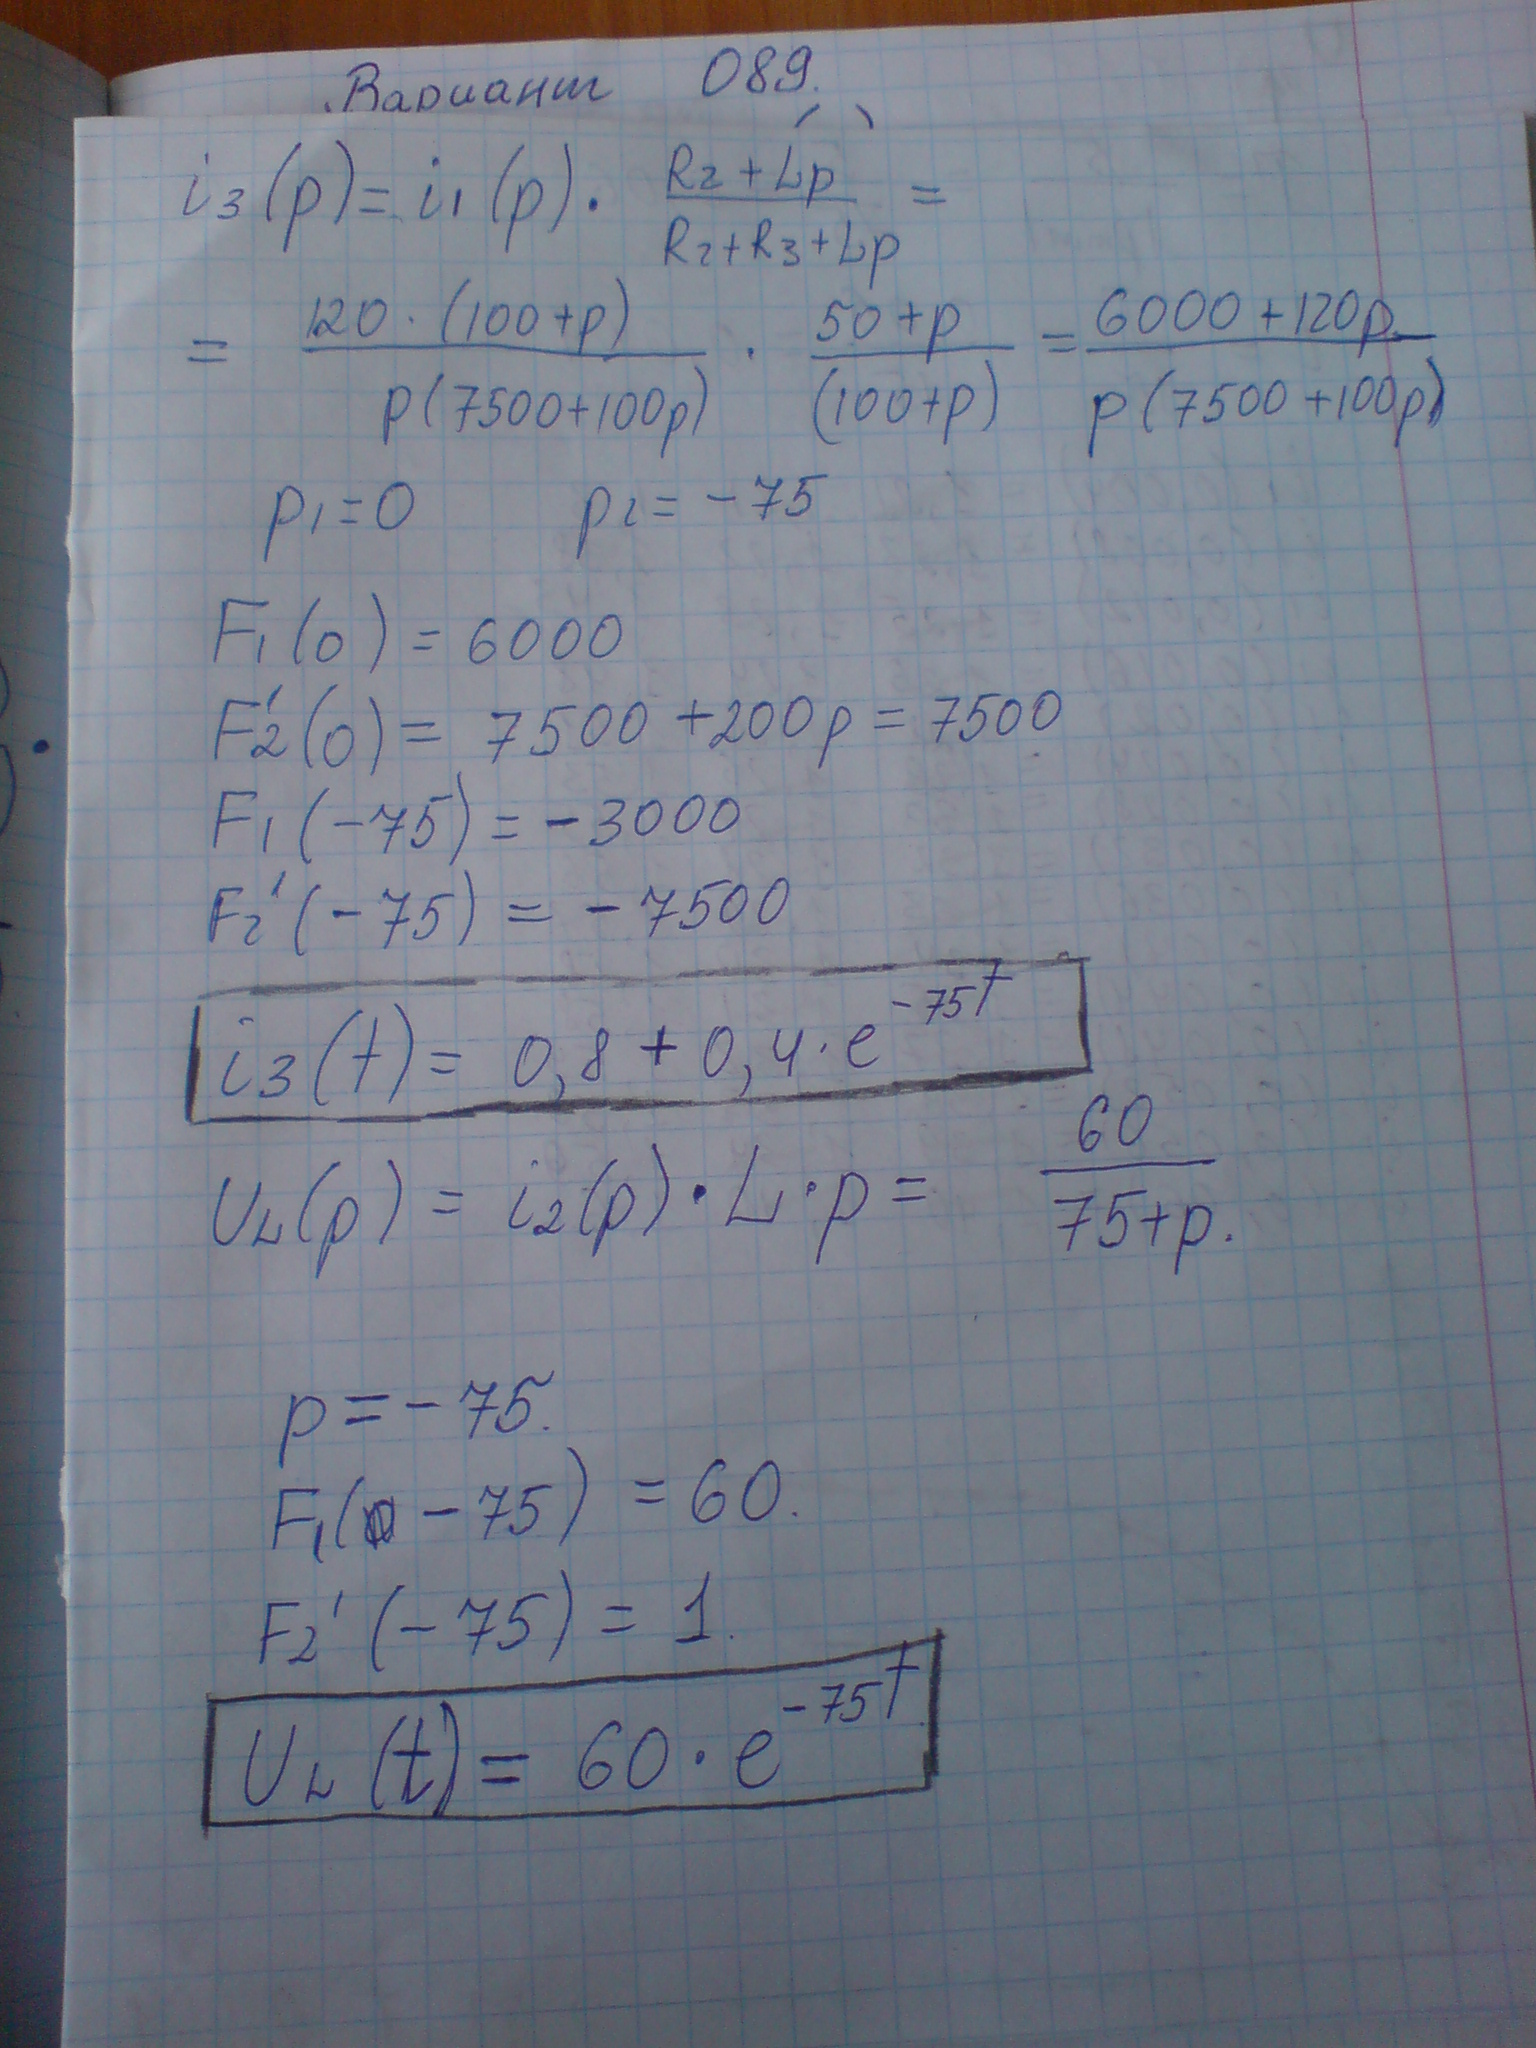 Вариант 089.
i3(p) = i1(p) · (R2 + Lp)/(R2 + R3 + Lp) =
= 120 · (100 + p)/(p(7500 + 100p)) · (50 + p)/(100 + p) = (6000 + 120p)/(p(7500 + 100p))
p1 = 0 p2 = -75
F1(0) = 6000
F2'(0) = 7500 + 200p = 7500
F1(-75) = -3000
F2'(-75) = -7500
i3(t) = 0,8 + 0,4 · e^-75t
UL(p) = i2(p) · L · p = 60/(75 + p).
p = -75.
F1(-75) = 60.
F2'(-75) = 1.
UL(t) = 60 · e^-75t